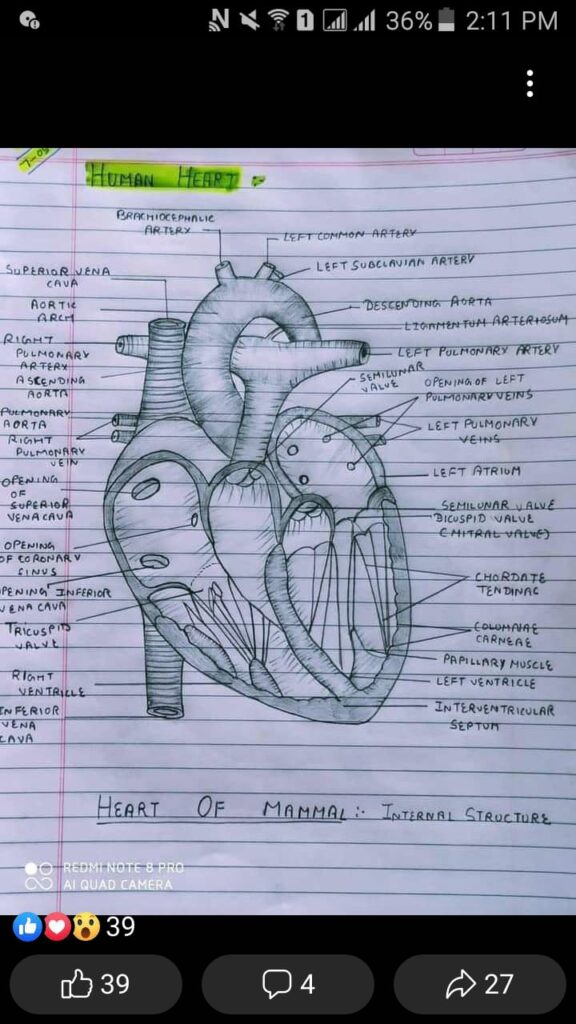 36% 2:11 PM
1
7-05
HUMAN HEART
BRACHIOCEPHALIC
ARTERY
LEFT COMMON ARTERY
LEFT SUBCLAVIAN ARTERY
SUPERIOR VENA
CAVA
AORTIC
ARCH
DESCENDING AORTA
LIGAMENTUM ARTERIOSUM
RIGHT
PULMONARY
ARTERY
LEFT PULMONARY ARTERY
ASCENDING
AORTA
SEMILUNAR
VALVE
OPENING OF LEFT
PULMONARY VEINS
PULMONARY
AORTA
RIGHT
PULMONARY
VEIN
LEFT PULMONARY
VEINS
LEFT ATRIUM
OPENING
OF
SUPERIOR
VENACAVA
SEMILUNAR VALVE
BICUSPID VALVE
(MITRAL VALVE)
OPENING
OF CORONARY
SINUS
OPENING INFERIOR
VENA CAVA
CHORDATE
TENDINAC
TRICUSPID
VALVE
COLUMNAE
CARNEAE
PAPILLARY MUSCLE
RIGHT
VENTRICLE
LEFT VENTRICLE
INFERIOR
VENA
CAVA
INTERVENTRICULAR
SEPTUM
HEART OF MAMMAL :- INTERNAL STRUCTURE
REDMI NOTE 8 PRO
AI QUAD CAMERA
39
39 4 27